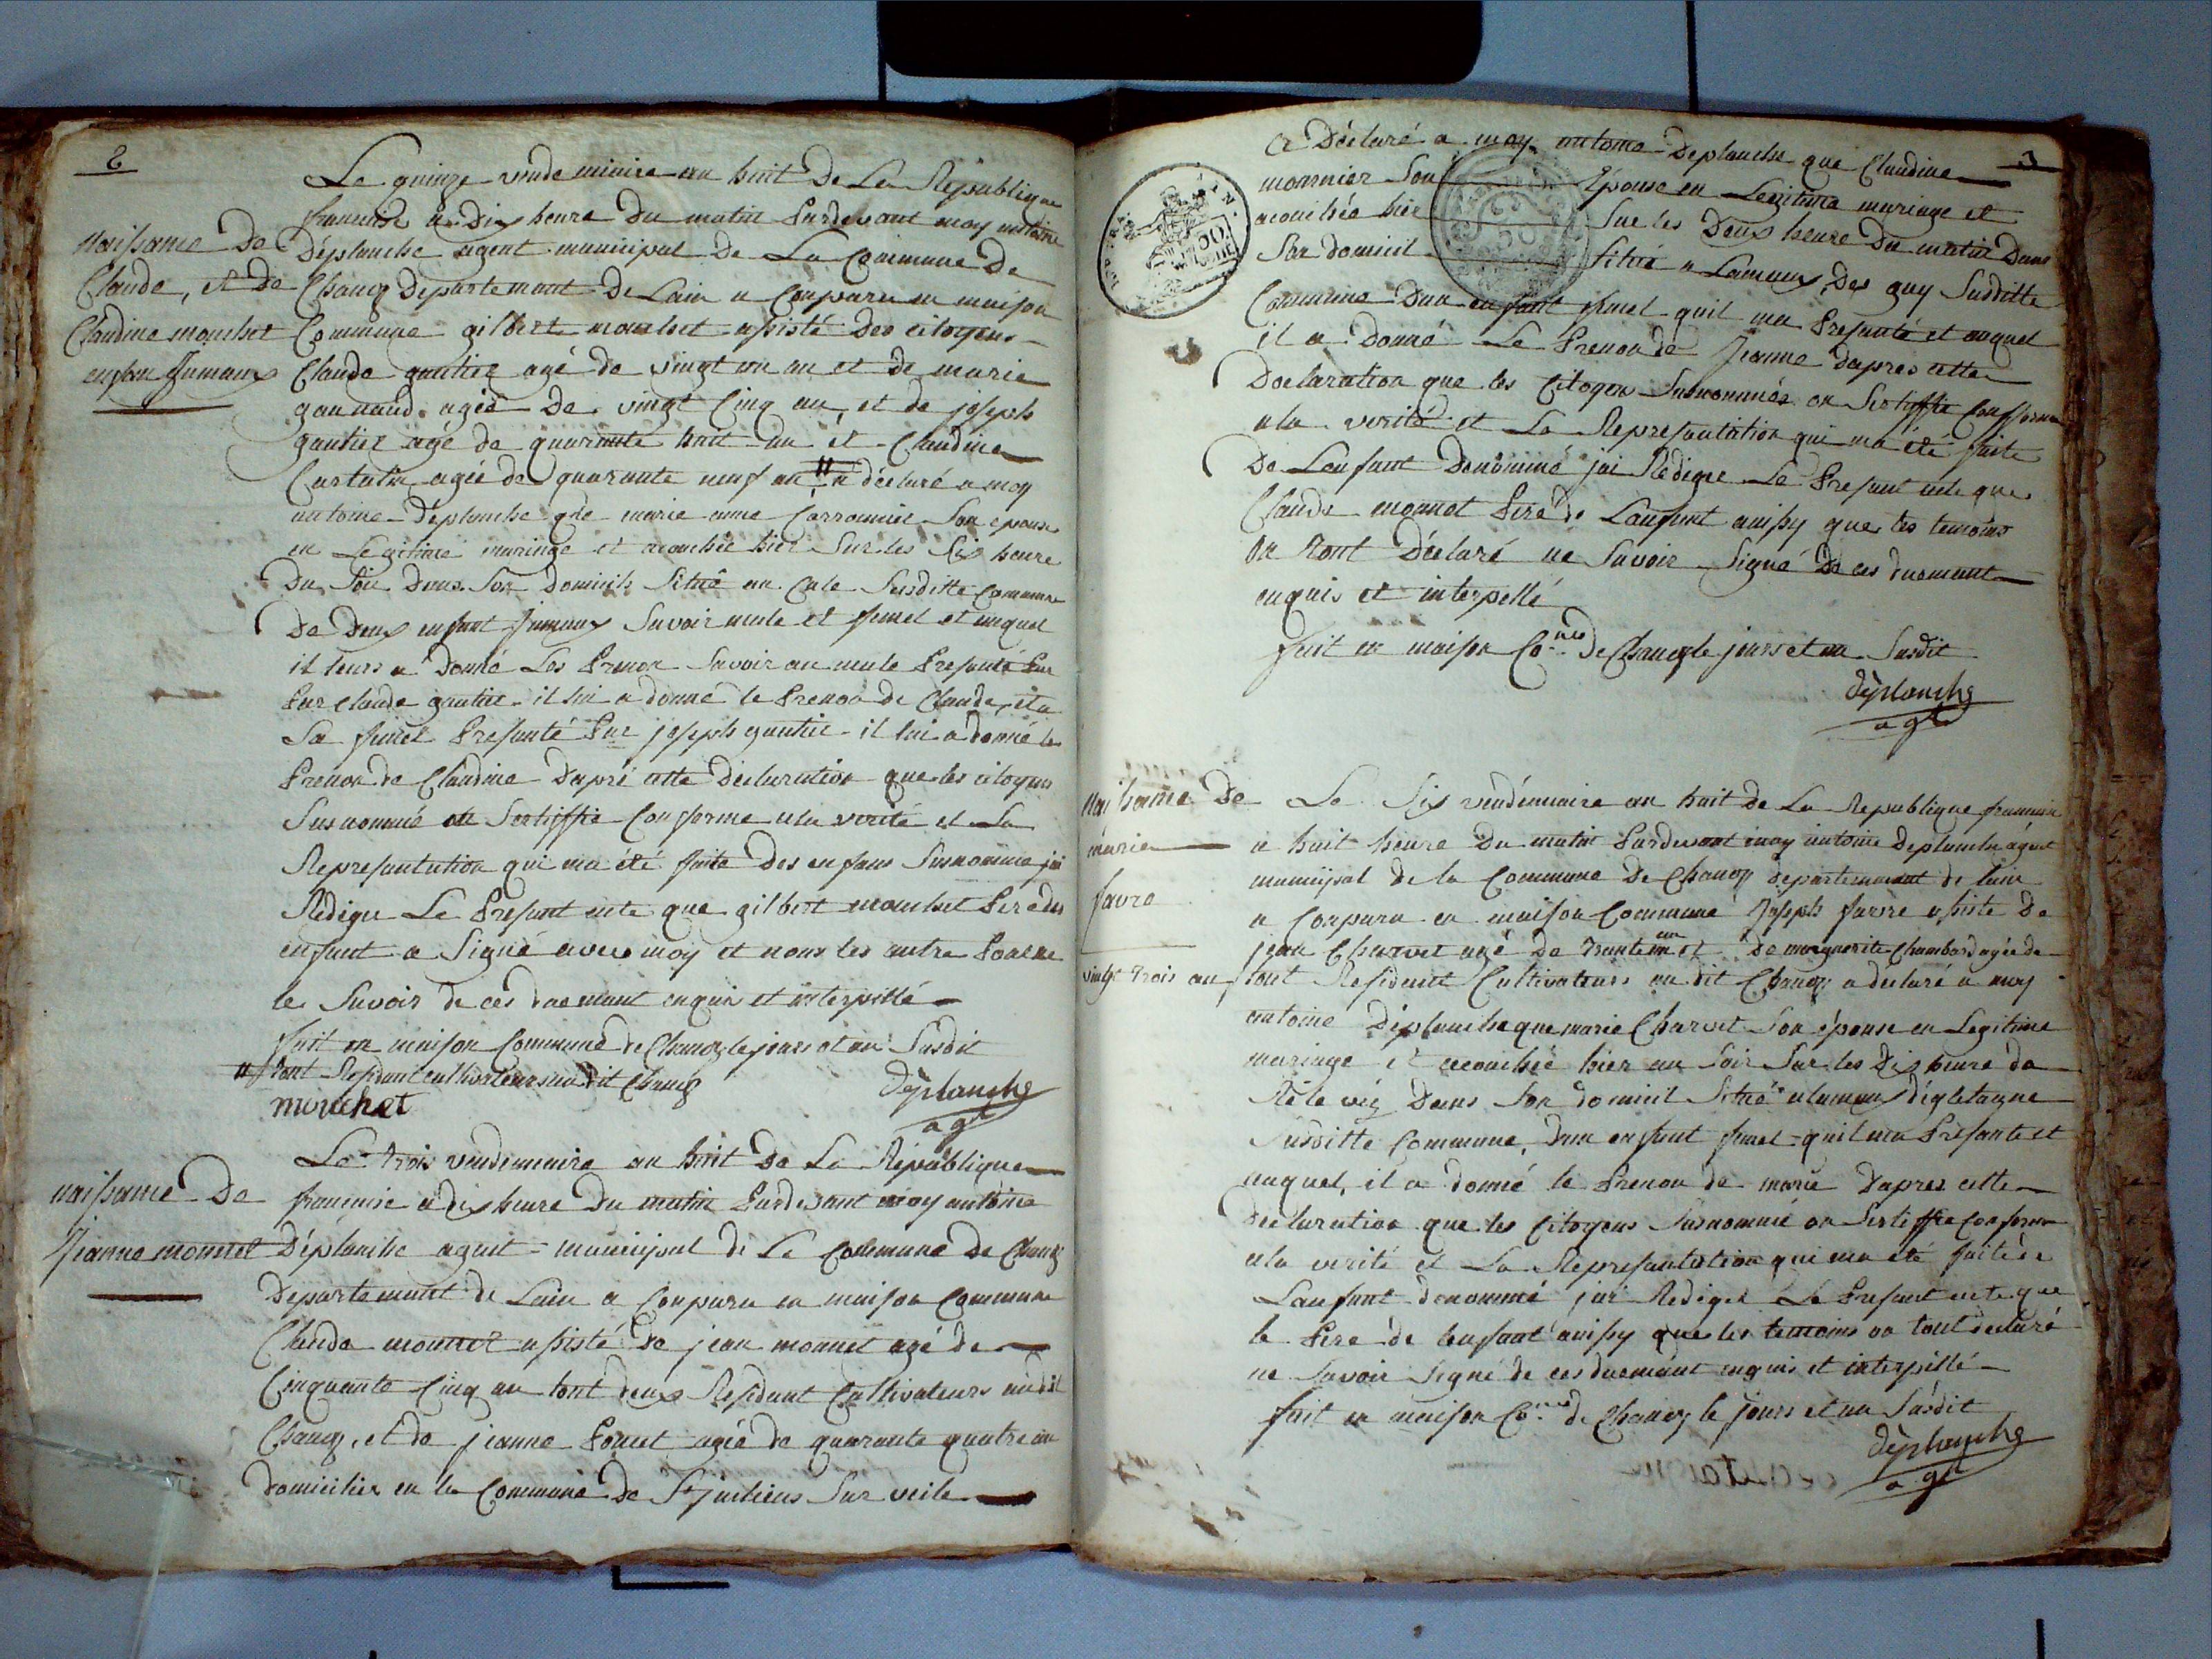 2
Le quinze vindeminire an huit De La Republique
francaise a Dix heure Du matin Pardevant moy antoine
Déplanche agent municipal De La Commune De
Chanoz Departemant De Lain a Conparu en maison
Commune gilbert mouchet asisté Des citoyens
Claude gautier agé de vingt un an et de marie
gounaud agée De vingt Cinq an, et de joseph
gautier agé de quarante huit an et Claudine
Curtatin agée de quarante neuf an " a déclaré a moy
antoine Deplanche que marie anne Carronnier Son épouse
en Legitime mariage et acouchée hier Sur les Six heure
Du Soir Dans Son Domicile Situé au Cale Susditte Commune
De Deux enfant Jumaux Savoir male et femel et auquel
il leurs a Donné Les Prenon Savoir au male Presanté Par
Par Claude gautier il lui a donné le Prenon de Claude, et a
La femel Presanté Par joseph gautier il lui a donné le
Prenon de Claudine Dapré cette Déclaration que les citoyens
Susnommé on Sertiffié Conforme a la verité et La
Represantation qui ma été faite Des enfans Susnommé jai
Redigé Le Présant acte que gilbert mouchet Pere des
enfant a Signé avec moy et non les autre Pour ne
le Savoir de ces duemant enquis et interpellé
fait en maison Commune de Chanoz le jours et an Susdit
" tout Residant cultivateurs audit Chanoz
mouchet
Déplanche
agt
Naissance De
Claude, et De
Claudine mouchet
enfan Jumaux
Le trois vindemiaire an huit De La République
francaise a dix heure Du matin Pardevant moy antoine
Déplanche agent municipal de La Commune De Chanoz
Departemant de Lain a Conparu en maison Commune
Claude monnet asisté De jean monnet agé de
Cinquante Cinq an tout deux Residant Cultivateurs audit
Chanoz, et de jeanne Poncet agée de quarante quatre an
Domicilier en la Commune De St julliens Sur veile
naissance De
Jeanne monnet
3
a Déclaré a moy antoine Deplanche que Claudine
monnier Son Épouse en Legitime mariage et
acouchée hier Sur les Deux heure Du matin Dans
Son domicil Situé a Lamaux Des guy Susditte
Commune Dun enfant femel quil ma Presanté et auquel
il a Donné Le Prenon de Jeanne dapres cette
Declaration que les Citoyen Susnommés on Sertiffié Confforme
a la verité et La Represantation qui ma été faite
De Lenfant Denommé jai Redigé Le Presant acte que
Claude monnet Pere de Lanfant ainsy que les temoins
on tout Déclaré ne Savoir Signé De ces duemant
enquis et interpellé
fait en maison Cone de Chanoz le jours et an Susdit
déplanche
agt
Naissance De
marie
favre
Le Six vendémiaire an huit de La Republique francaise
a huit heure Du matin Pardevant moy antoine Deplanche agent
municipal de la Commune De Chanoz departemant de lain
a Conparu en maison Commune Joseph favre asisté De
jean Charvet agé De trante un an et De marguerite Chambard agée de
vingt trois an, tout Residant Cultivateurs au dit Chanoz a declaré a moy
antoine Déplanche que marie Charvet Son épouse en Legitime
mariage et acouchée hier au Soir Sur les Dix heure de
Dans Son domicil Situé
Susditte Commune, Dun enfant femel quil ma Présanté et
auquel, il a donné le Prenon de marie Dapres cette
declaration que les Citoyens Susnommé on Sertiffié Conforme
a la verité et La Represantation qui ma été faite de
Lanfant denommé jai Redigé Le Presant acte que
le Pere de lenfant ainsy que les temoins on tout declaré
ne Savoir Signé de ces duemant enquis et interpellé
fait en maison Cone de Chanoz le jours et an Susdit
déplanche
agt